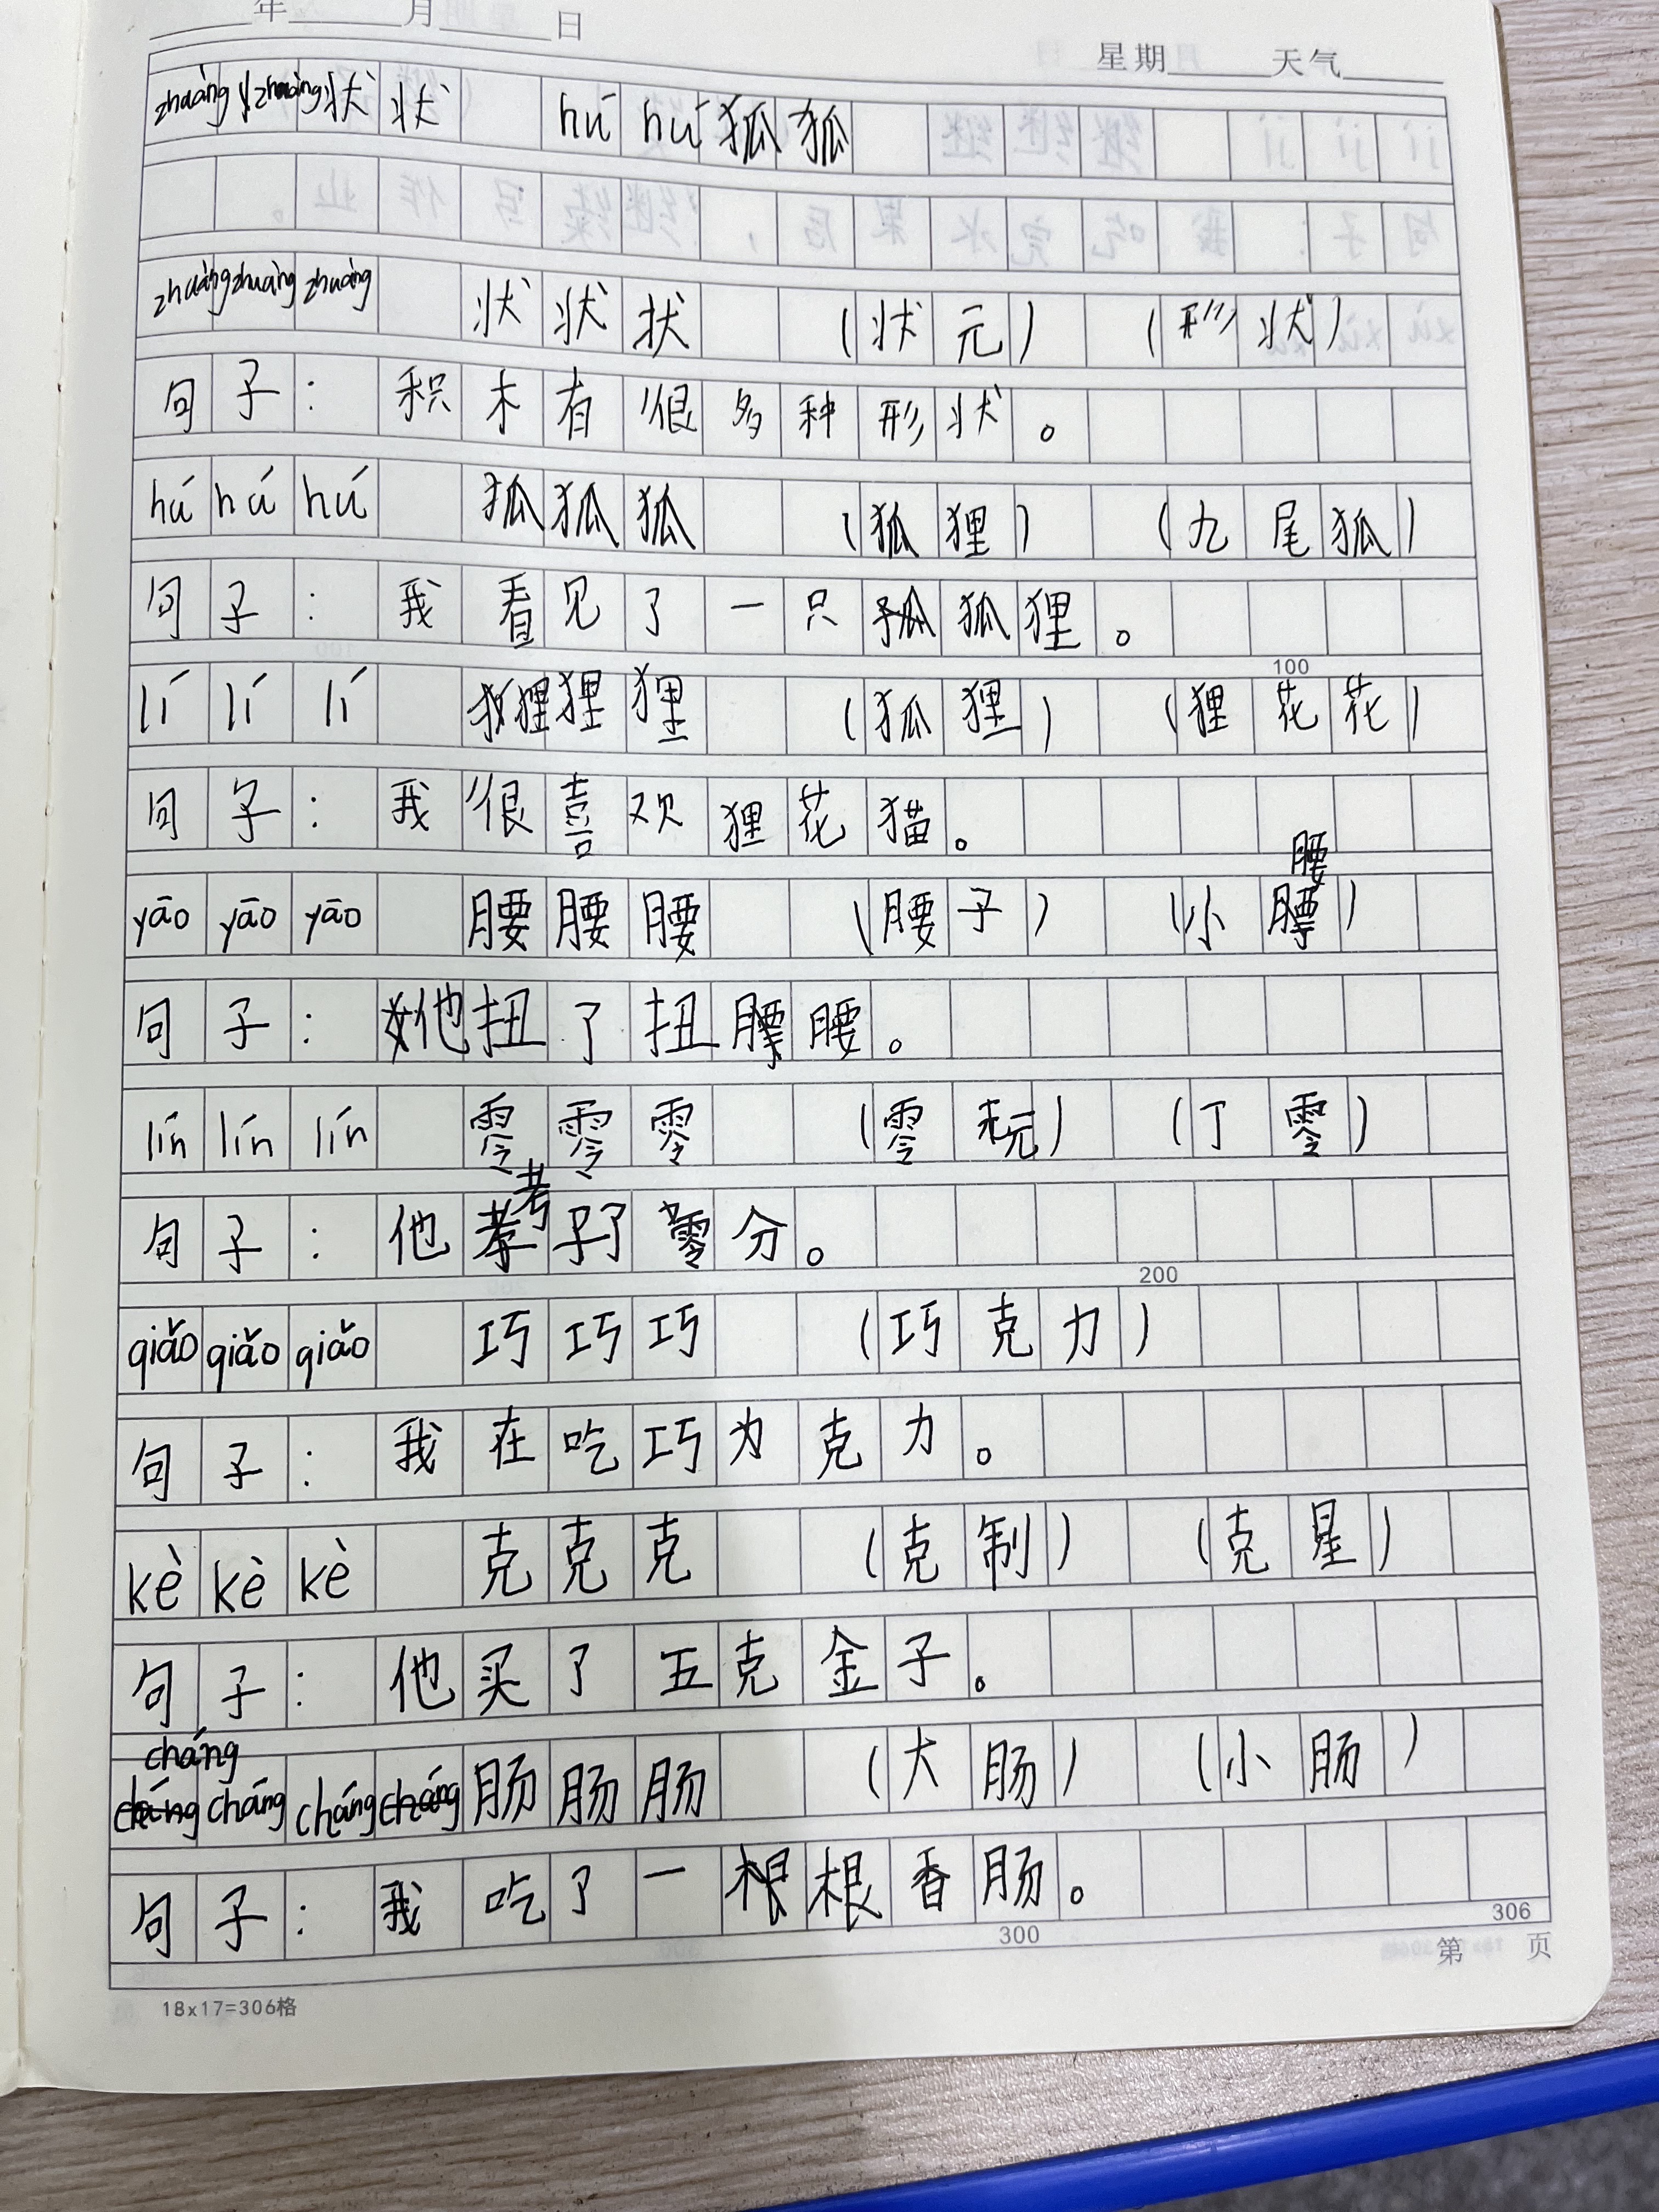 年 月 日
星期 天气
zhuàng zhuàng 状 状 hú hú 狐 狐
zhuàng zhuàng zhuàng 状 状 状 (状元) (形状)
句子:积木有很多种形状。
hú hú hú 狐 狐 狐 (狐狸) (九尾狐)
句子:我看见了一只狐狸。
100
lí lí lí 狸 狸 狸 (狐狸) (狸花花)
句子:我很喜欢狸花猫。
yāo yāo yāo 腰 腰 腰 (腰子) (小腰)
句子:他扭了扭腰。
lín lín lín 零 零 零 (零元) (丁零)
句子:他考了零分。
200
qiǎo qiǎo qiǎo 巧 巧 巧 (巧克力)
句子:我在吃巧克力。
kè kè kè 克 克 克 (克制) (克星)
句子:他买了五克金子。
cháng cháng cháng 肠 肠 肠 (大肠) (小肠)
句子:我吃了一根香肠。
300
306
第 页
18x17=306格